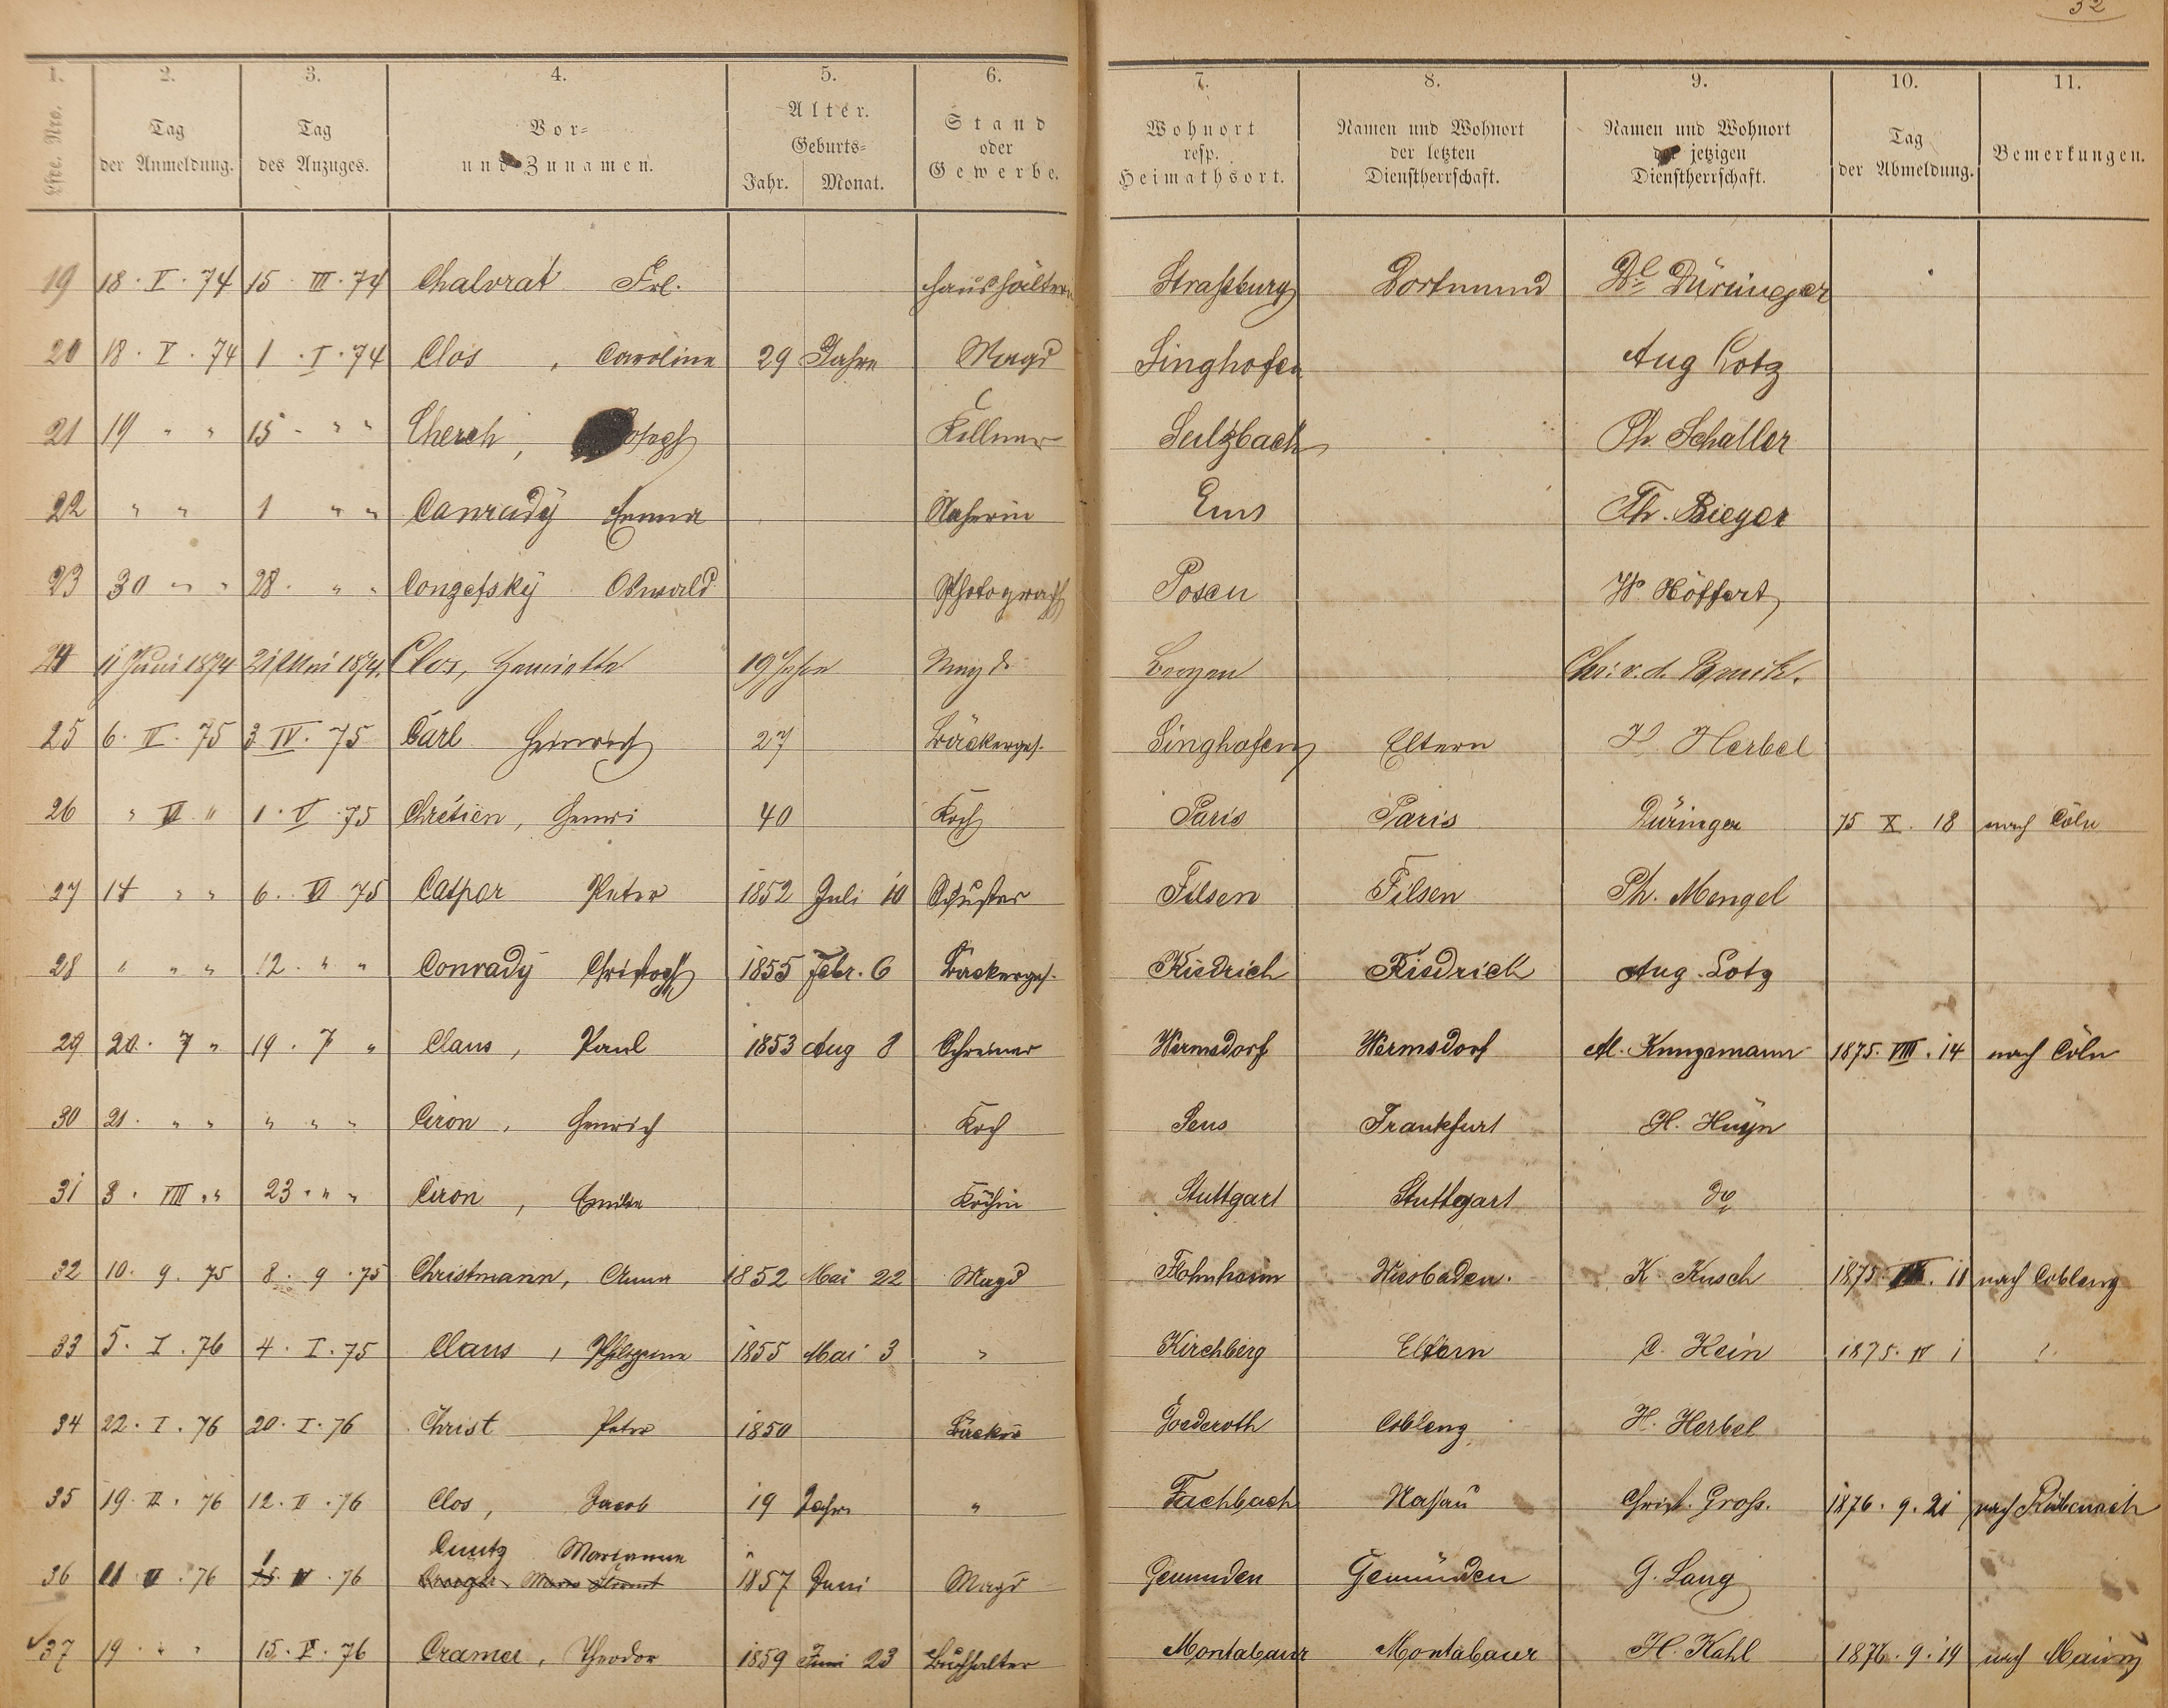 32
1. 2. 3. 4. 5. 6. 7. 8. 9. 10. 11.
Lfde. Nro. Tag der Anmeldung. Tag des Anzuges. Vor- und Zunamen. Alter. Geburts- Jahr. Monat. Stand oder Gewerbe. Wohnort resp. Heimathsort. Namen und Wohnort der letzten Dienstherrschaft. Namen und Wohnort der jetzigen Dienstherrschaft. Tag der Abmeldung. Bemerkungen.
19 18. V. 74 15 III. 74 Chalvrat Frl. Haushälterin Straßburg Dortmund Düringer
20 18. V. 74 1. V. 74 Clos, Caroline 29 Jahre Magd Singhofen Aug Lotz
21 19 " " 15 " " Cherch, Kellner Sulzbach Ph. Schaller
22 " " 1 " " Conrady Emma Näherin Ems Th. Bieger
23 30 " " 28. " " Oswald Photograph Posen W. Höffert
24 11 Juni 1874 21 Mai 1874. Clos, Henriette 19 Jahre Magd
25 6. IV. 75 3 IV. 75 Carl Heinrich 27 Bäckerges. Singhofen Eltern H. Herbel
26 " VI " 1. V. 75 Chrétien, Henri 40 Koch Paris Paris Düringer 75 X. 18 nach Cöln
27 14 " " 6. VI 75 Caspar Peter 1852 Juli 10 Schuster Filsen Filsen Ph. Mengel
28 " " " 12. " " Conrady Christoph 1855 Febr. 6 Bäckerges. Kiedrich Kiedrich Aug. Lotz
29 20. 7 " 19. 7 " Claus, Paul 1853 Aug 8 Schreiner Wermsdorf Wermsdorf A. Kunzemann 1875. VIII. 14 nach Cöln
30 21. " " " " " Ciron, Heinrich Koch Sens Frankfurt H. Huyn
31 3. VIII " " 23 " " Ciron, Emilie Köchin Stuttgart Stuttgart do
32 10. 9. 75 8. 9. 75 Christmann, Anna 1852 Mai 22 Magd Flohnheim Wiesbaden. K. Kusch 1875. 11 nach Coblenz
33 5. I. 76 4. I. 75 Claus, Philippine 1855 Mai 3 " Kirchberg Eltern C. Hein 1875. IV 1 !
34 22. I. 76 20. I. 76 Christ Peter 1850 Bäcker Goederoth Coblenz H. Herbel
35 19. II. 76 12. II. 76 Clos, Jacob 19 Jahre " Fachbach Nassau Christ. Groß. 1876. 9. 21 nach Rübenach
Cuntz Marianne
36 11 V. 76 1 15 V. 76 1857 Juni Magd Gemünden Gemünden G. Lang
√37 19. " " 15. V. 76 Cramer, Theodor 1859 Juni 23 Buchhalter Montabaur Montabaur H. Kahl 1876. 9. 19 nach Mainz